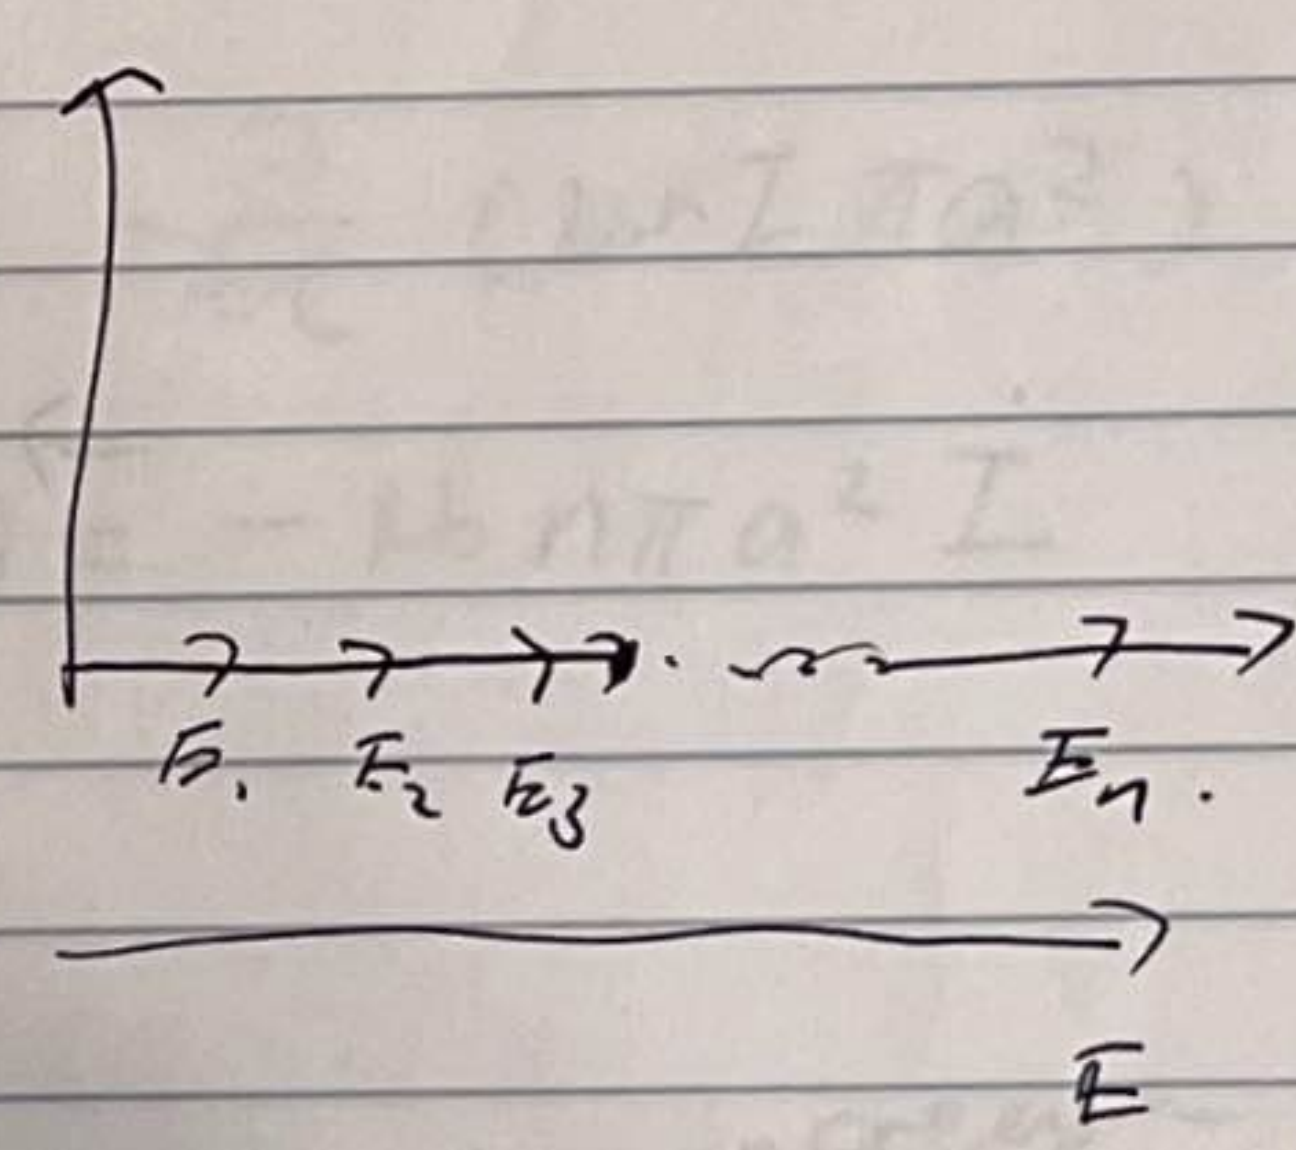 E₁ E₂ E₃ Eₙ.
E